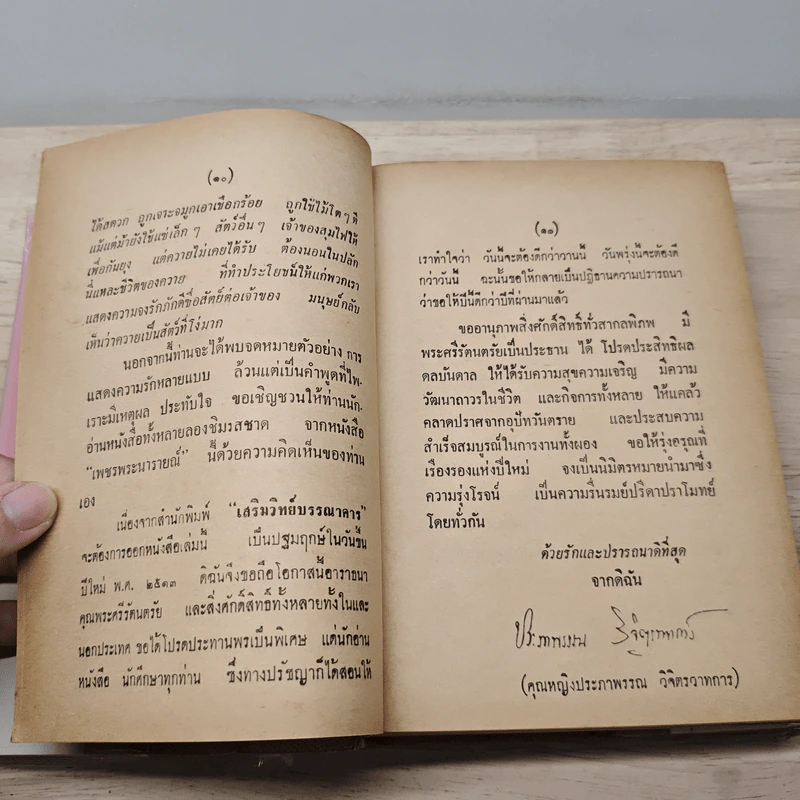 (๑๐)
ได้สดวก ถูกเจาะจมูกเอาเชือกร้อย ถูกใช้ไม้โตๆตี
แม้แต่ม้ายังใช้แซ่เล็กๆ สัตว์อื่นๆ เจ้าของสุมไฟให้
เพื่อกันยุง แต่ควายไม่เคยได้รับ ต้องนอนในปลัก
นี่แหละชีวิตของควาย ที่ทำประโยชน์ให้แก่พวกเรา
แสดงความจงรักภักดีซื่อสัตย์ต่อเจ้าของ มนุษย์กลับ
เห็นว่าควายเป็นสัตว์ที่โง่มาก
นอกจากนี้ท่านจะได้พบจดหมายตัวอย่าง การ
แสดงความรักหลายแบบ ล้วนแต่เป็นคำพูดที่ไพ-
เราะมีเหตุผล ประทับใจ ขอเชิญชวนให้ท่านนัก-
อ่านหนังสือทั้งหลายลองชิมรสชาด จากหนังสือ
"เพชรพระนารายณ์" นี้ด้วยความคิดเห็นของท่าน
เอง
เนื่องจากสำนักพิมพ์ "เสริมวิทย์บรรณาคาร"
จะต้องการออกหนังสือเล่มนี้ เป็นปฐมฤกษ์ในวันขึ้น
ปีใหม่ พ.ศ. ๒๕๑๓ ดิฉันจึงขอถือโอกาสนี้อาราธนา
คุณพระศรีรัตนตรัย และสิ่งศักดิ์สิทธิ์ทั้งหลายทั้งในและ
นอกประเทศ ขอได้โปรดประทานพรเป็นพิเศษ แด่นักอ่าน
หนังสือ นักศึกษาทุกท่าน ซึ่งทางปรัชญาก็ได้สอนให้
(๑๑)
เราทำใจว่า วันนี้จะต้องดีกว่าวานนี้ วันพรุ่งนี้จะต้องดี
กว่าวันนี้ ฉะนั้นขอให้กลายเป็นปฏิธานความปรารถนา
ว่าขอให้ปีนี้ดีกว่าปีที่ผ่านมาแล้ว
ขออานุภาพสิ่งศักดิ์สิทธิ์ทั่วสากลพิภพ มี
พระศรีรัตนตรัยเป็นประธาน ได้ โปรดประสิทธิผล
ดลบันดาล ให้ได้รับความสุขความเจริญ มีความ
วัฒนาถาวรในชีวิต และกิจการทั้งหลาย ให้แคล้ว
คลาดปราศจากอุปัทวันตราย และประสบความ
สำเร็จสมบูรณ์ในการงานทั้งผอง ขอให้รุ่งอรุณที่
เรืองรองแห่งปีใหม่ จงเป็นนิมิตรหมายนำมาซึ่ง
ความรุ่งโรจน์ เป็นความรื่นรมย์ปรีดาปราโมทย์
โดยทั่วกัน
ด้วยรักและปรารถนาดีที่สุด
จากดิฉัน
ประภาพรรณ วิจิตรวาทการ
(คุณหญิงประภาพรรณ วิจิตรวาทการ)